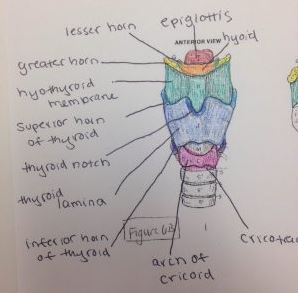 lesser horn
epiglottis
ANTERIOR VIEW
hyoid
greater horn
hyothyroid
membrane
superior horn
of thyroid
thyroid notch
thyroid
lamina
inferior horn
of thyroid
Figure 6B
arch of
cricoid